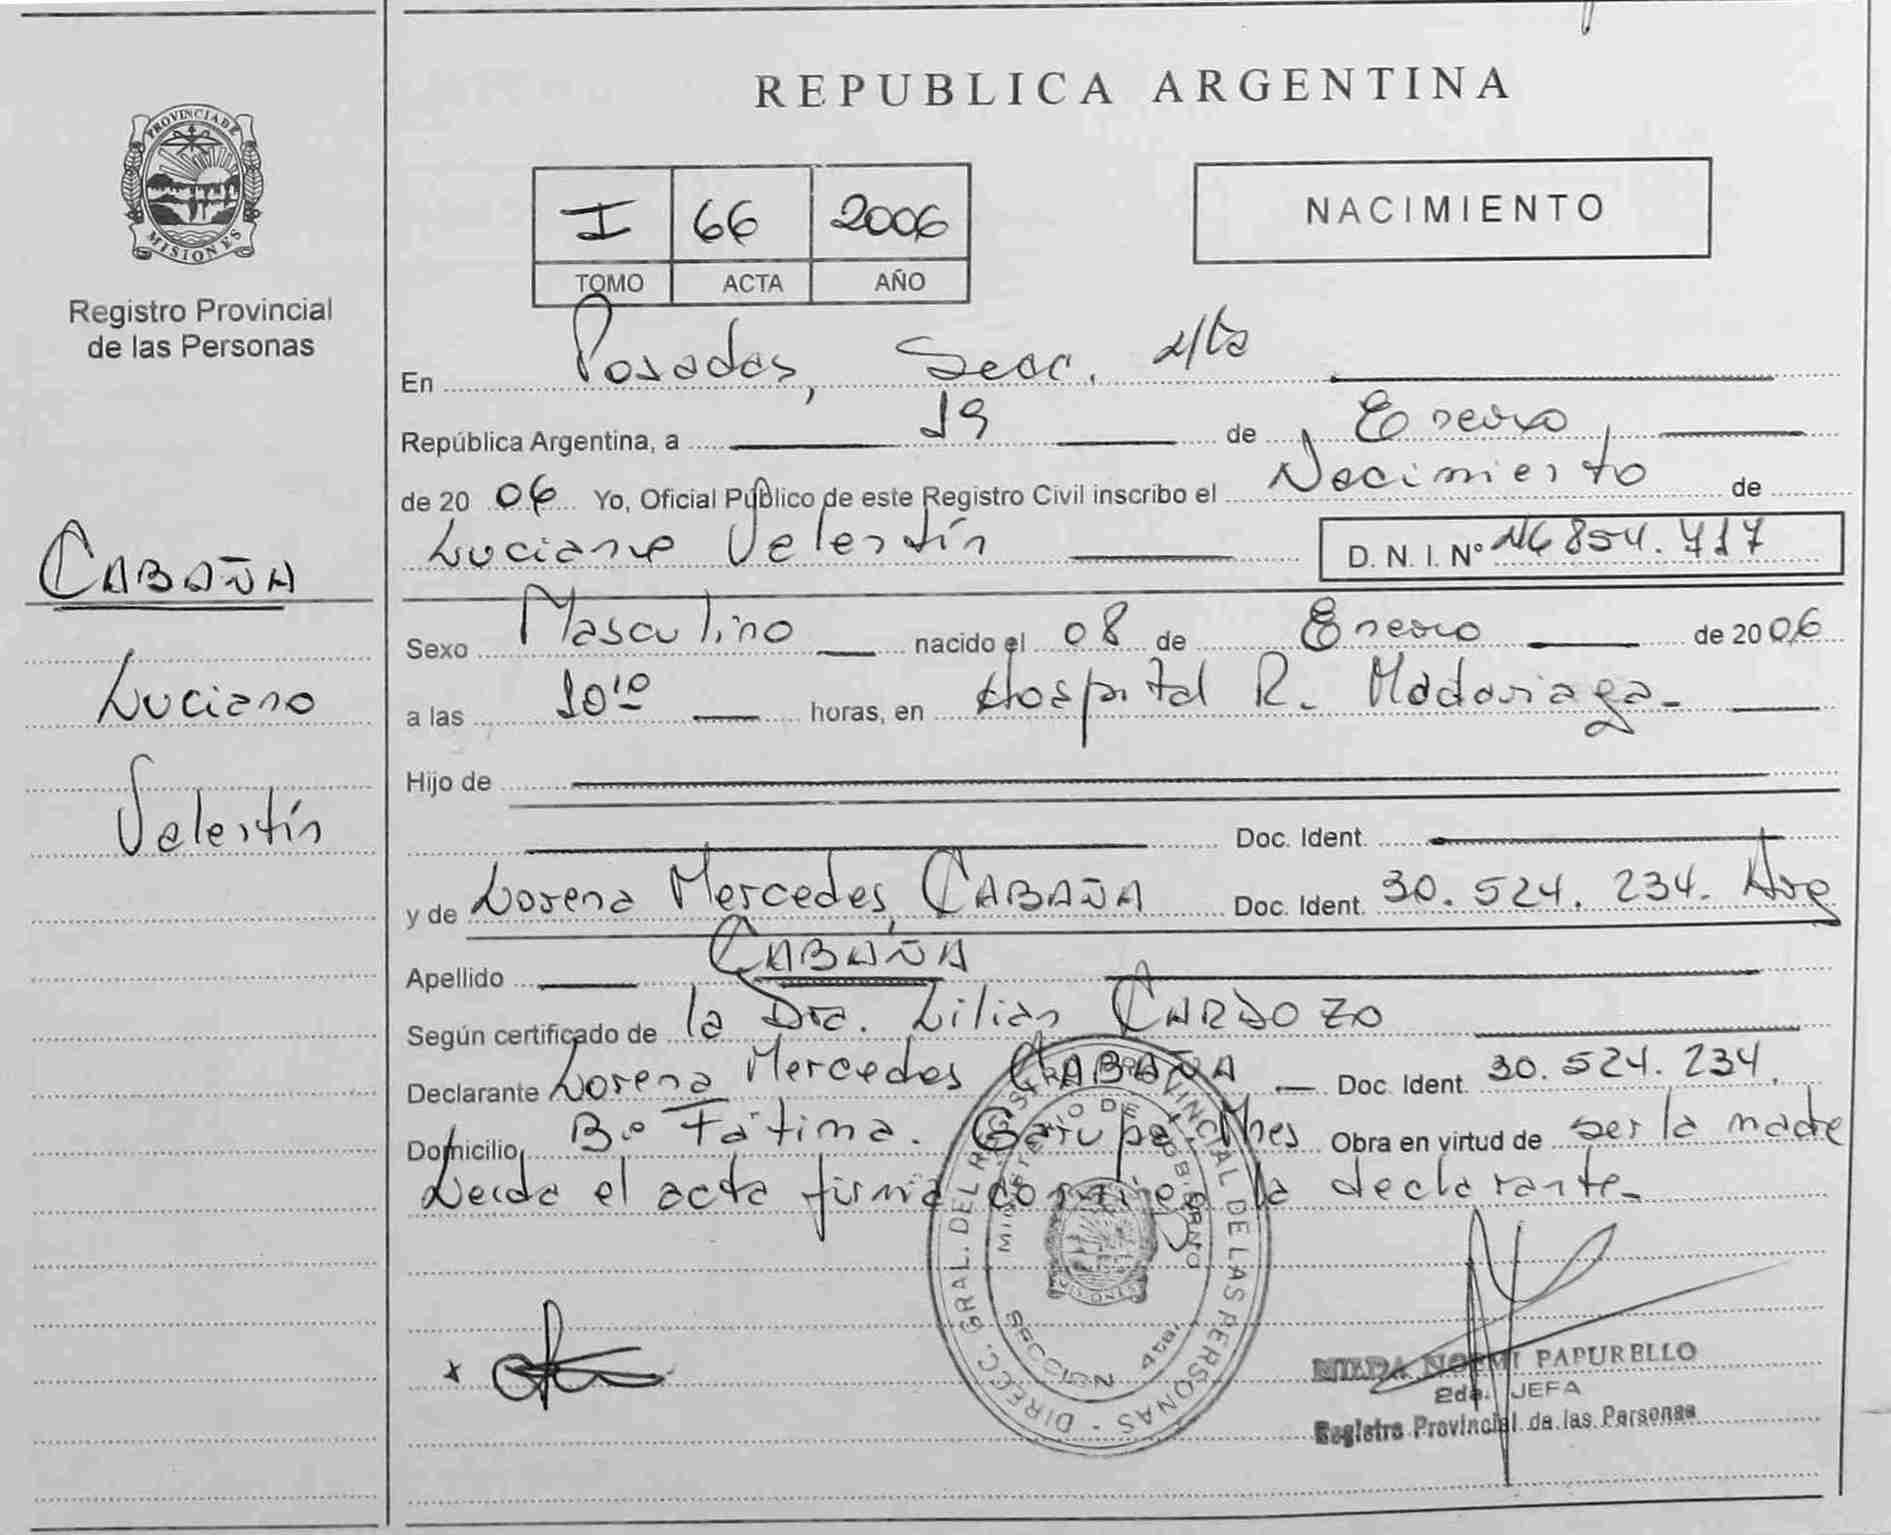 REPUBLICA ARGENTINA
PROVINCIA DE MISIONES
Registro Provincial
de las Personas
NACIMIENTO
I 66 2006
TOMO ACTA AÑO
En Posadas, Secc. 4/ta
República Argentina, a 19 de Enero
de 2006 Yo, Oficial Público de este Registro Civil inscribo el Nacimiento de
Luciano Valentín D. N. I. Nº 46.854.717
CABAÑA
Luciano
Valentín
Sexo Masculino nacido el 08 de Enero de 2006
a las 10'10 horas, en Hospital R. Madariaga.
Hijo de
Doc. Ident.
y de Lorena Mercedes CABAÑA Doc. Ident. 30.524.234. Arg
Apellido CABAÑA
Según certificado de la Dra. Lilian CARDOZO
Declarante Lorena Mercedes CABAÑA Doc. Ident. 30.524.234.
Domicilio Bº Fátima. Garupá, Mnes Obra en virtud de ser la madre
Leída el acta firma conmigo la declarante.
DIRECC. GRAL. DEL REGISTRO PROVINCIAL DE LAS PERSONAS -
MINISTERIO DE GOBIERNO
SECCION 4ta.
NORMI PAPURELLO
2da. JEFA
Registro Provincial de las Personas